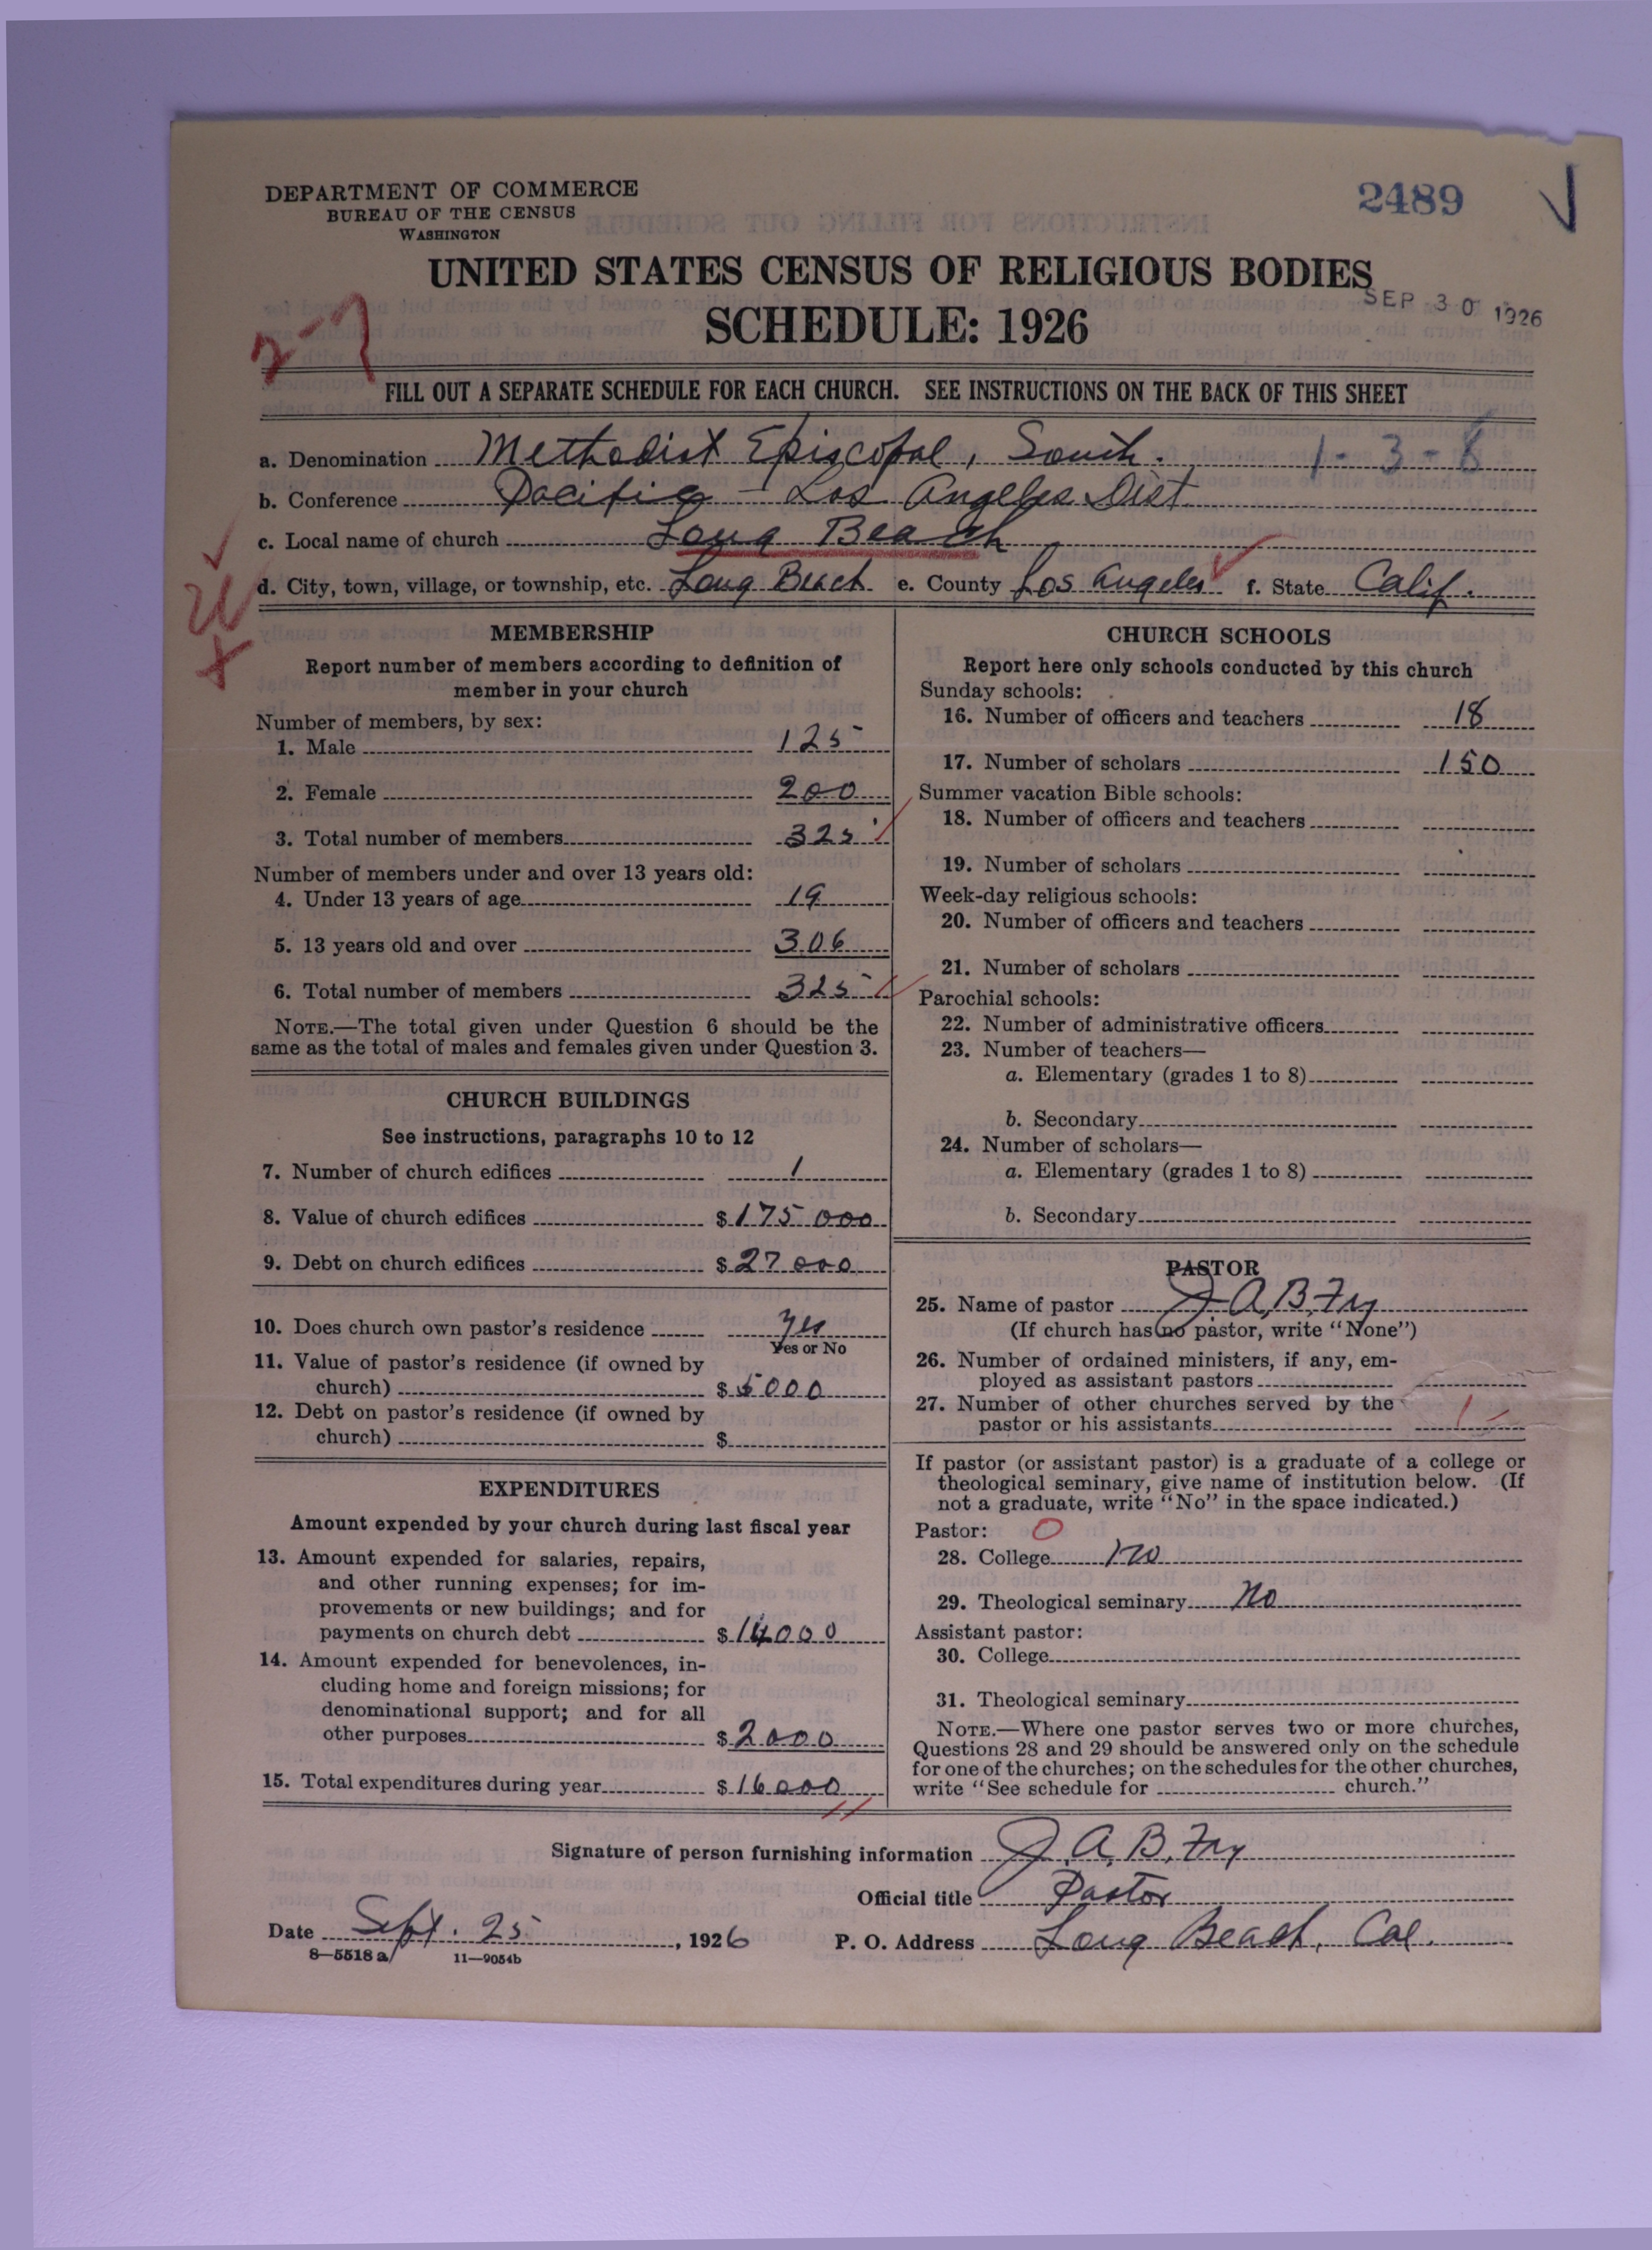 DEPARTMENT OF COMMERCE
BUREAU OF THE CENSUS
WASHINGTON
2489
UNITED STATES CENSUS OF RELIGIOUS BODIES
SEP 30 1926
SCHEDULE: 1926
FILL OUT A SEPARATE SCHEDULE FOR EACH CHURCH. SEE INSTRUCTIONS ON THE BACK OF THIS SHEET
a. Denomination Methodist Episcopal, South. 1-3-8
b. Conference Pacific - Los Angeles Dist
c. Local name of church Long Beach
d. City, town, village, or township, etc. Long Beach e. County Los Angeles f. State Calif.
MEMBERSHIP
Report number of members according to definition of
member in your church
Number of members, by sex:
1. Male 125
2. Female 200
3. Total number of members 325
Number of members under and over 13 years old:
4. Under 13 years of age 19
5. 13 years old and over 306
6. Total number of members 325
NOTE.—The total given under Question 6 should be the
same as the total of males and females given under Question 3.
CHURCH BUILDINGS
See instructions, paragraphs 10 to 12
7. Number of church edifices 1
8. Value of church edifices $175 000
9. Debt on church edifices $27 000
10. Does church own pastor's residence Yes
Yes or No
11. Value of pastor's residence (if owned by
church) $5000
12. Debt on pastor's residence (if owned by
church) $
EXPENDITURES
Amount expended by your church during last fiscal year
13. Amount expended for salaries, repairs,
and other running expenses; for im-
provements or new buildings; and for
payments on church debt $14000
14. Amount expended for benevolences, in-
cluding home and foreign missions; for
denominational support; and for all
other purposes $2000
15. Total expenditures during year $16000
CHURCH SCHOOLS
Report here only schools conducted by this church
Sunday schools:
16. Number of officers and teachers 18
17. Number of scholars 150
Summer vacation Bible schools:
18. Number of officers and teachers
19. Number of scholars
Week-day religious schools:
20. Number of officers and teachers
21. Number of scholars
Parochial schools:
22. Number of administrative officers
23. Number of teachers—
a. Elementary (grades 1 to 8)
b. Secondary
24. Number of scholars—
a. Elementary (grades 1 to 8)
b. Secondary
PASTOR
25. Name of pastor J.A.B. Fry
(If church has no pastor, write "None")
26. Number of ordained ministers, if any, em-
ployed as assistant pastors
27. Number of other churches served by the
pastor or his assistants 1
If pastor (or assistant pastor) is a graduate of a college or
theological seminary, give name of institution below. (If
not a graduate, write "No" in the space indicated.)
Pastor: 0
28. College no
29. Theological seminary no
Assistant pastor:
30. College
31. Theological seminary
NOTE.—Where one pastor serves two or more churches,
Questions 28 and 29 should be answered only on the schedule
for one of the churches; on the schedules for the other churches,
write "See schedule for church."
Signature of person furnishing information J.A.B. Fry
Official title Pastor
Date Sept. 25, 1926 P. O. Address Long Beach, Cal.
8—5518a 11—9054b